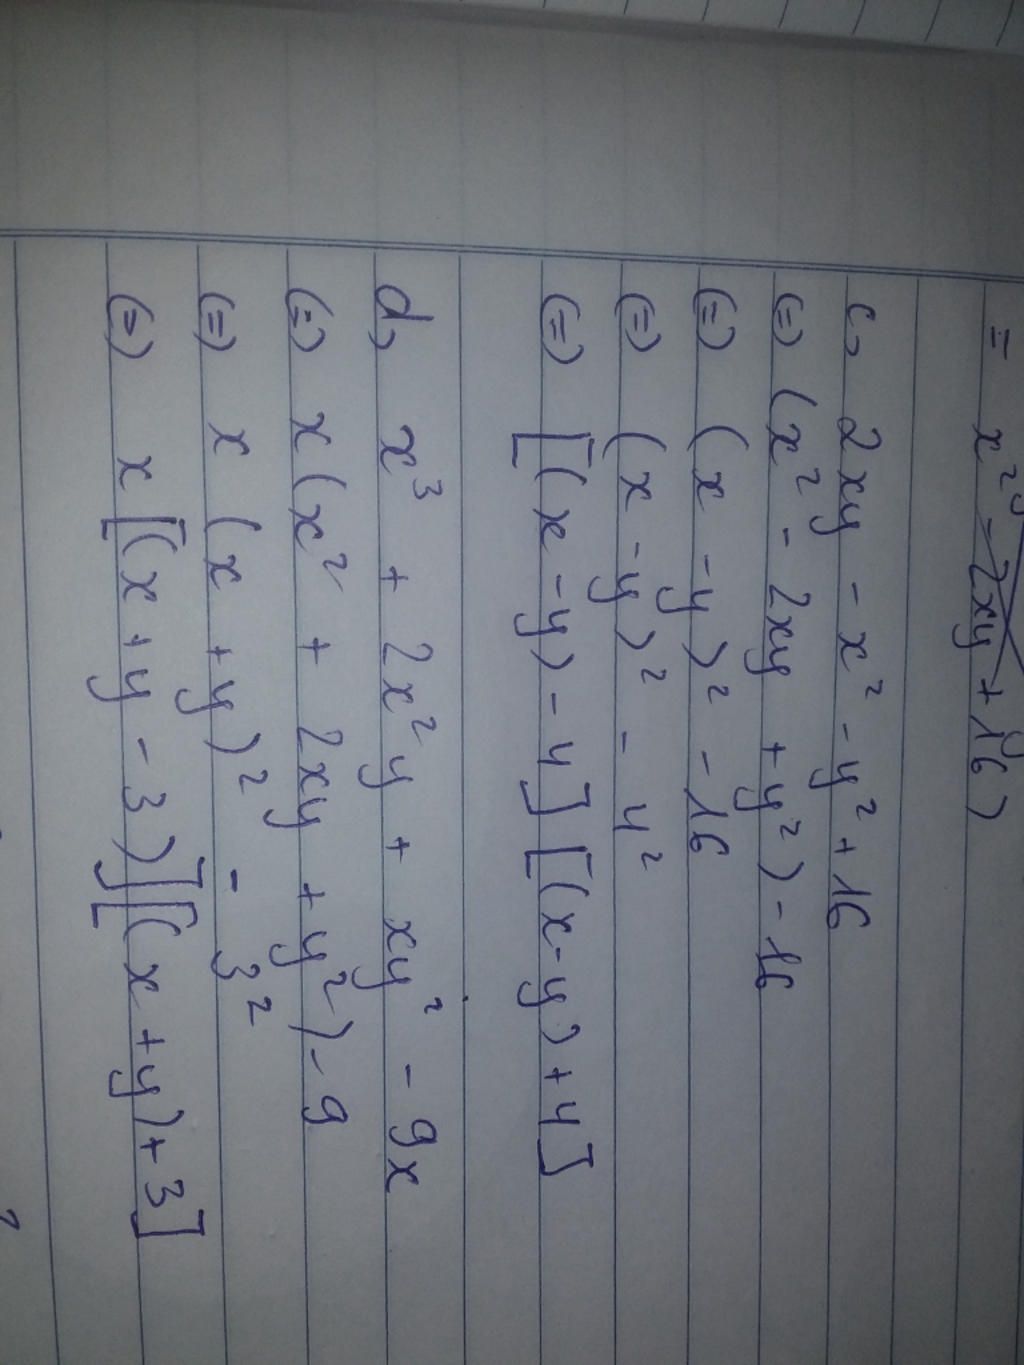 = x² - 2xy + 16)
c, 2xy - x² - y² + 16
(=) (x² - 2xy + y²) - 16
(=) (x - y)² - 16
(=) (x - y)² - 4²
(=) [(x - y) - 4] [(x - y) + 4]
d, x³ + 2x²y + xy² - 9x
(=) x(x² + 2xy + y²) - 9
(=) x (x + y)² - 3²
(=) x [(x + y - 3)] [(x + y) + 3]